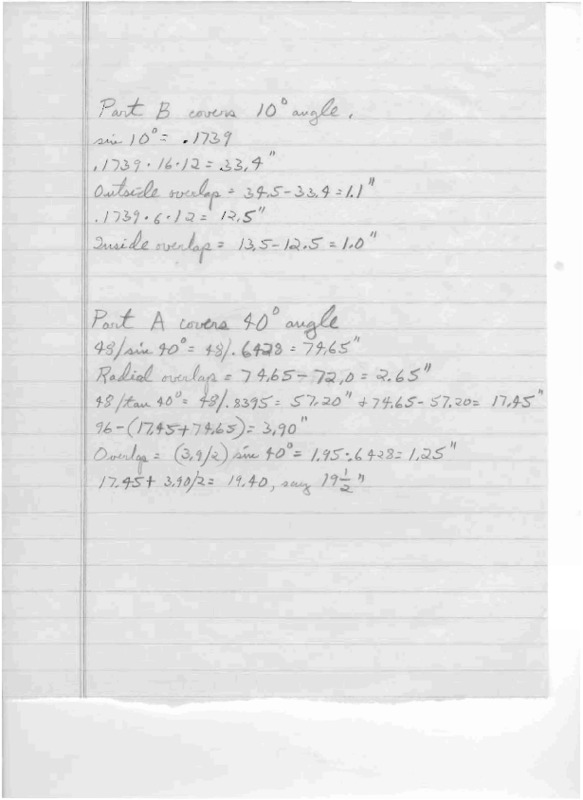 Part B covers 10° angle.
sin 10° = .1739
.1739·16·12 = 33.4"
Outside overlap = 34.5-33.4 = 1.1"
.1739·6·12 = 12.5"
Inside overlap = 13.5-12.5 = 1.0"
Part A covers 40° angle
48/sin 40° = 48/.6428 = 74.65"
Radial overlap = 74.65-72.0 = 2.65"
48/tan 40° = 48/.8395 = 57.20" + 74.65-57.20 = 17.45"
96-(17.45+74.65) = 3.90"
Overlap = (3.9/2) sin 40° = 1.95·.6428 = 1.25"
17.45 + 3.90/2 = 19.40, say 19 1/2"